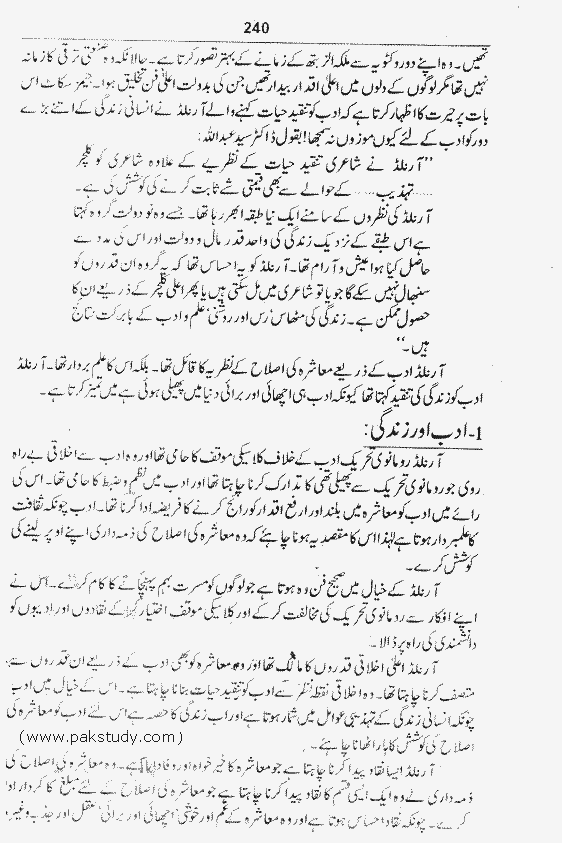 240
تھیں۔ وہ اپنے دور وکٹوریہ سے ملکہ الزبتھ کے زمانے کے بہتر تصور کرتا ہے۔ حالانکہ وہ صنعتی ترقی کا زمانہ
نہیں تھا مگر لوگوں کے دلوں میں اعلیٰ اقدار بیدار تھیں جن کی بدولت اعلیٰ فن تخلیق ہوا۔ جیمز سکاٹ اس
بات پر حیرت کا اظہار کرتا ہے کہ ادب کو تنقید حیات کہنے والے آرنلڈ نے انسانی زندگی کے اتنے بڑے
دور کو ادب کے لئے کیوں موزوں نہ سمجھا! بقول ڈاکٹر سید عبداللہ:
”آرنلڈ نے شاعری تنقید حیات کے نظریے کے علاوہ شاعری کو کلچر
..... تہذیب ..... کے حوالے سے بھی قیمتی شے ثابت کرنے کی کوشش کی ہے۔
آرنلڈ کی نظروں کے سامنے ایک نیا طبقہ ابھر رہا تھا۔ جسے وہ نو دولت گروہ کہتا
ہے اس طبقے کے نزدیک زندگی کی واحد قدر مال و دولت اور اس کی مدد سے
حاصل کیا ہوا عیش و آرام تھا۔ آرنلڈ کو یہ احساس تھا کہ یہ گروہ ان قدروں کو
سنبھال نہیں سکے گا جو یا تو شاعری میں مل سکتی ہیں یا پھر اعلیٰ کلچر کے ذریعے ان کا
حصول ممکن ہے۔ زندگی کی مٹھاس‘ رس اور روشنی‘ علم و ادب کے بابرکت نتائج
ہیں۔“
آرنلڈ ادب کے ذریعے معاشرہ کی اصلاح کے نظریہ کا قائل تھا۔ بلکہ اس کا علم بردار تھا۔ آرنلڈ
ادب کو زندگی کی تنقید کہتا تھا کیونکہ ادب ہی اچھائی اور برائی دنیا میں پھیلی ہوئی ہے میں تمیز کرتا ہے۔
1- ادب اور زندگی:
آرنلڈ رومانوی تحریک ادب کے خلاف کلاسیکی موقف کا حامی تھا اور وہ ادب سے اخلاقی بے راہ
روی جو رومانوی تحریک سے پھیلی تھی کا تدارک کرنا چاہتا تھا اور ادب میں نظم و ضبط کا حامی تھا۔ اس کی
رائے میں ادب کو معاشرہ میں بلند اور ارفع اقدار کو رائج کرنے کا فریضہ ادا کرنا تھا۔ ادب چونکہ ثقافت
کا علمبردار ہوتا ہے لہٰذا اس کا مقصد یہ ہونا چاہئے کہ وہ معاشرہ کی اصلاح کی ذمہ داری اپنے اوپر لینے کی
کوشش کرے۔
آرنلڈ کے خیال میں صحیح فن وہ ہوتا ہے جو لوگوں کو مسرت بہم پہنچانے کا کام کرے۔ اس نے
اپنے افکار سے رومانوی تحریک کی مخالفت کر کے اور کلاسیکی موقف اختیار کر کے نقادوں اور ادیبوں کو
دانشمندی کی راہ پر ڈالا۔
آرنلڈ اعلیٰ اخلاقی قدروں کا مالک تھا اور وہ معاشرہ کو بھی ادب کے ذریعے ان قدروں سے
متصف کرنا چاہتا تھا۔ وہ اخلاقی نقطہ نظر سے ادب کو تنقید حیات بنانا چاہتا ہے۔ اس کے خیال میں ادب
چونکہ انسانی زندگی کے تہذیبی عوامل میں شمار ہوتا ہے اور اب زندگی کا حصہ ہے اس لئے ادب کو معاشرہ کی
اصلاح کی کوشش کا بار اٹھانا چاہئے۔
(www.pakstudy.com)
آرنلڈ ایسا نقاد پیدا کرنا چاہتا ہے جو معاشرہ کا خیر خواہ اور وفادار ہے۔ وہ معاشرہ کی اصلاح کی
ذمہ داری نے وہ ایک ایسی قسم کا نقاد پیدا کرنا چاہتا ہے جو معاشرہ کی اصلاح کے لئے مبلغ کا کردار ادا
کرے۔ چونکہ نقاد احساس ہوتا ہے اور وہ معاشرہ کے غم اور خوشی‘ اچھائی اور برائی‘ عقل اور جذب وغیرہ